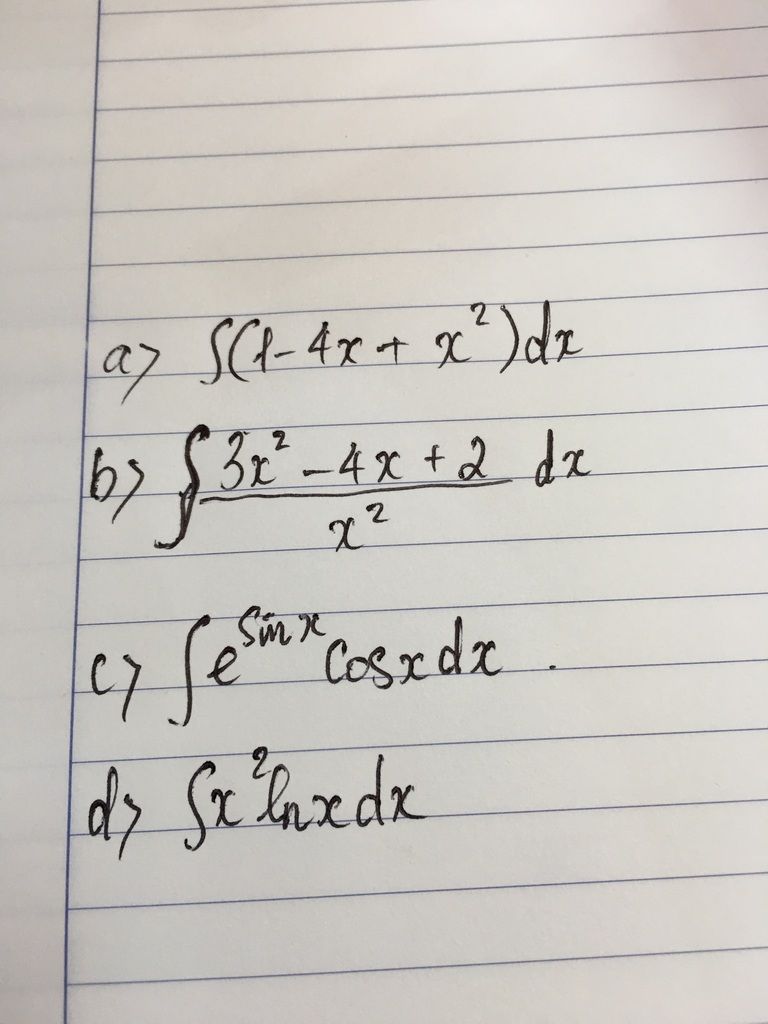 a> ∫(1-4x + x²)dx
b> ∫ (3x² - 4x + 2)/x² dx
c> ∫e^sinx cosx dx .
d> ∫x² lnx dx